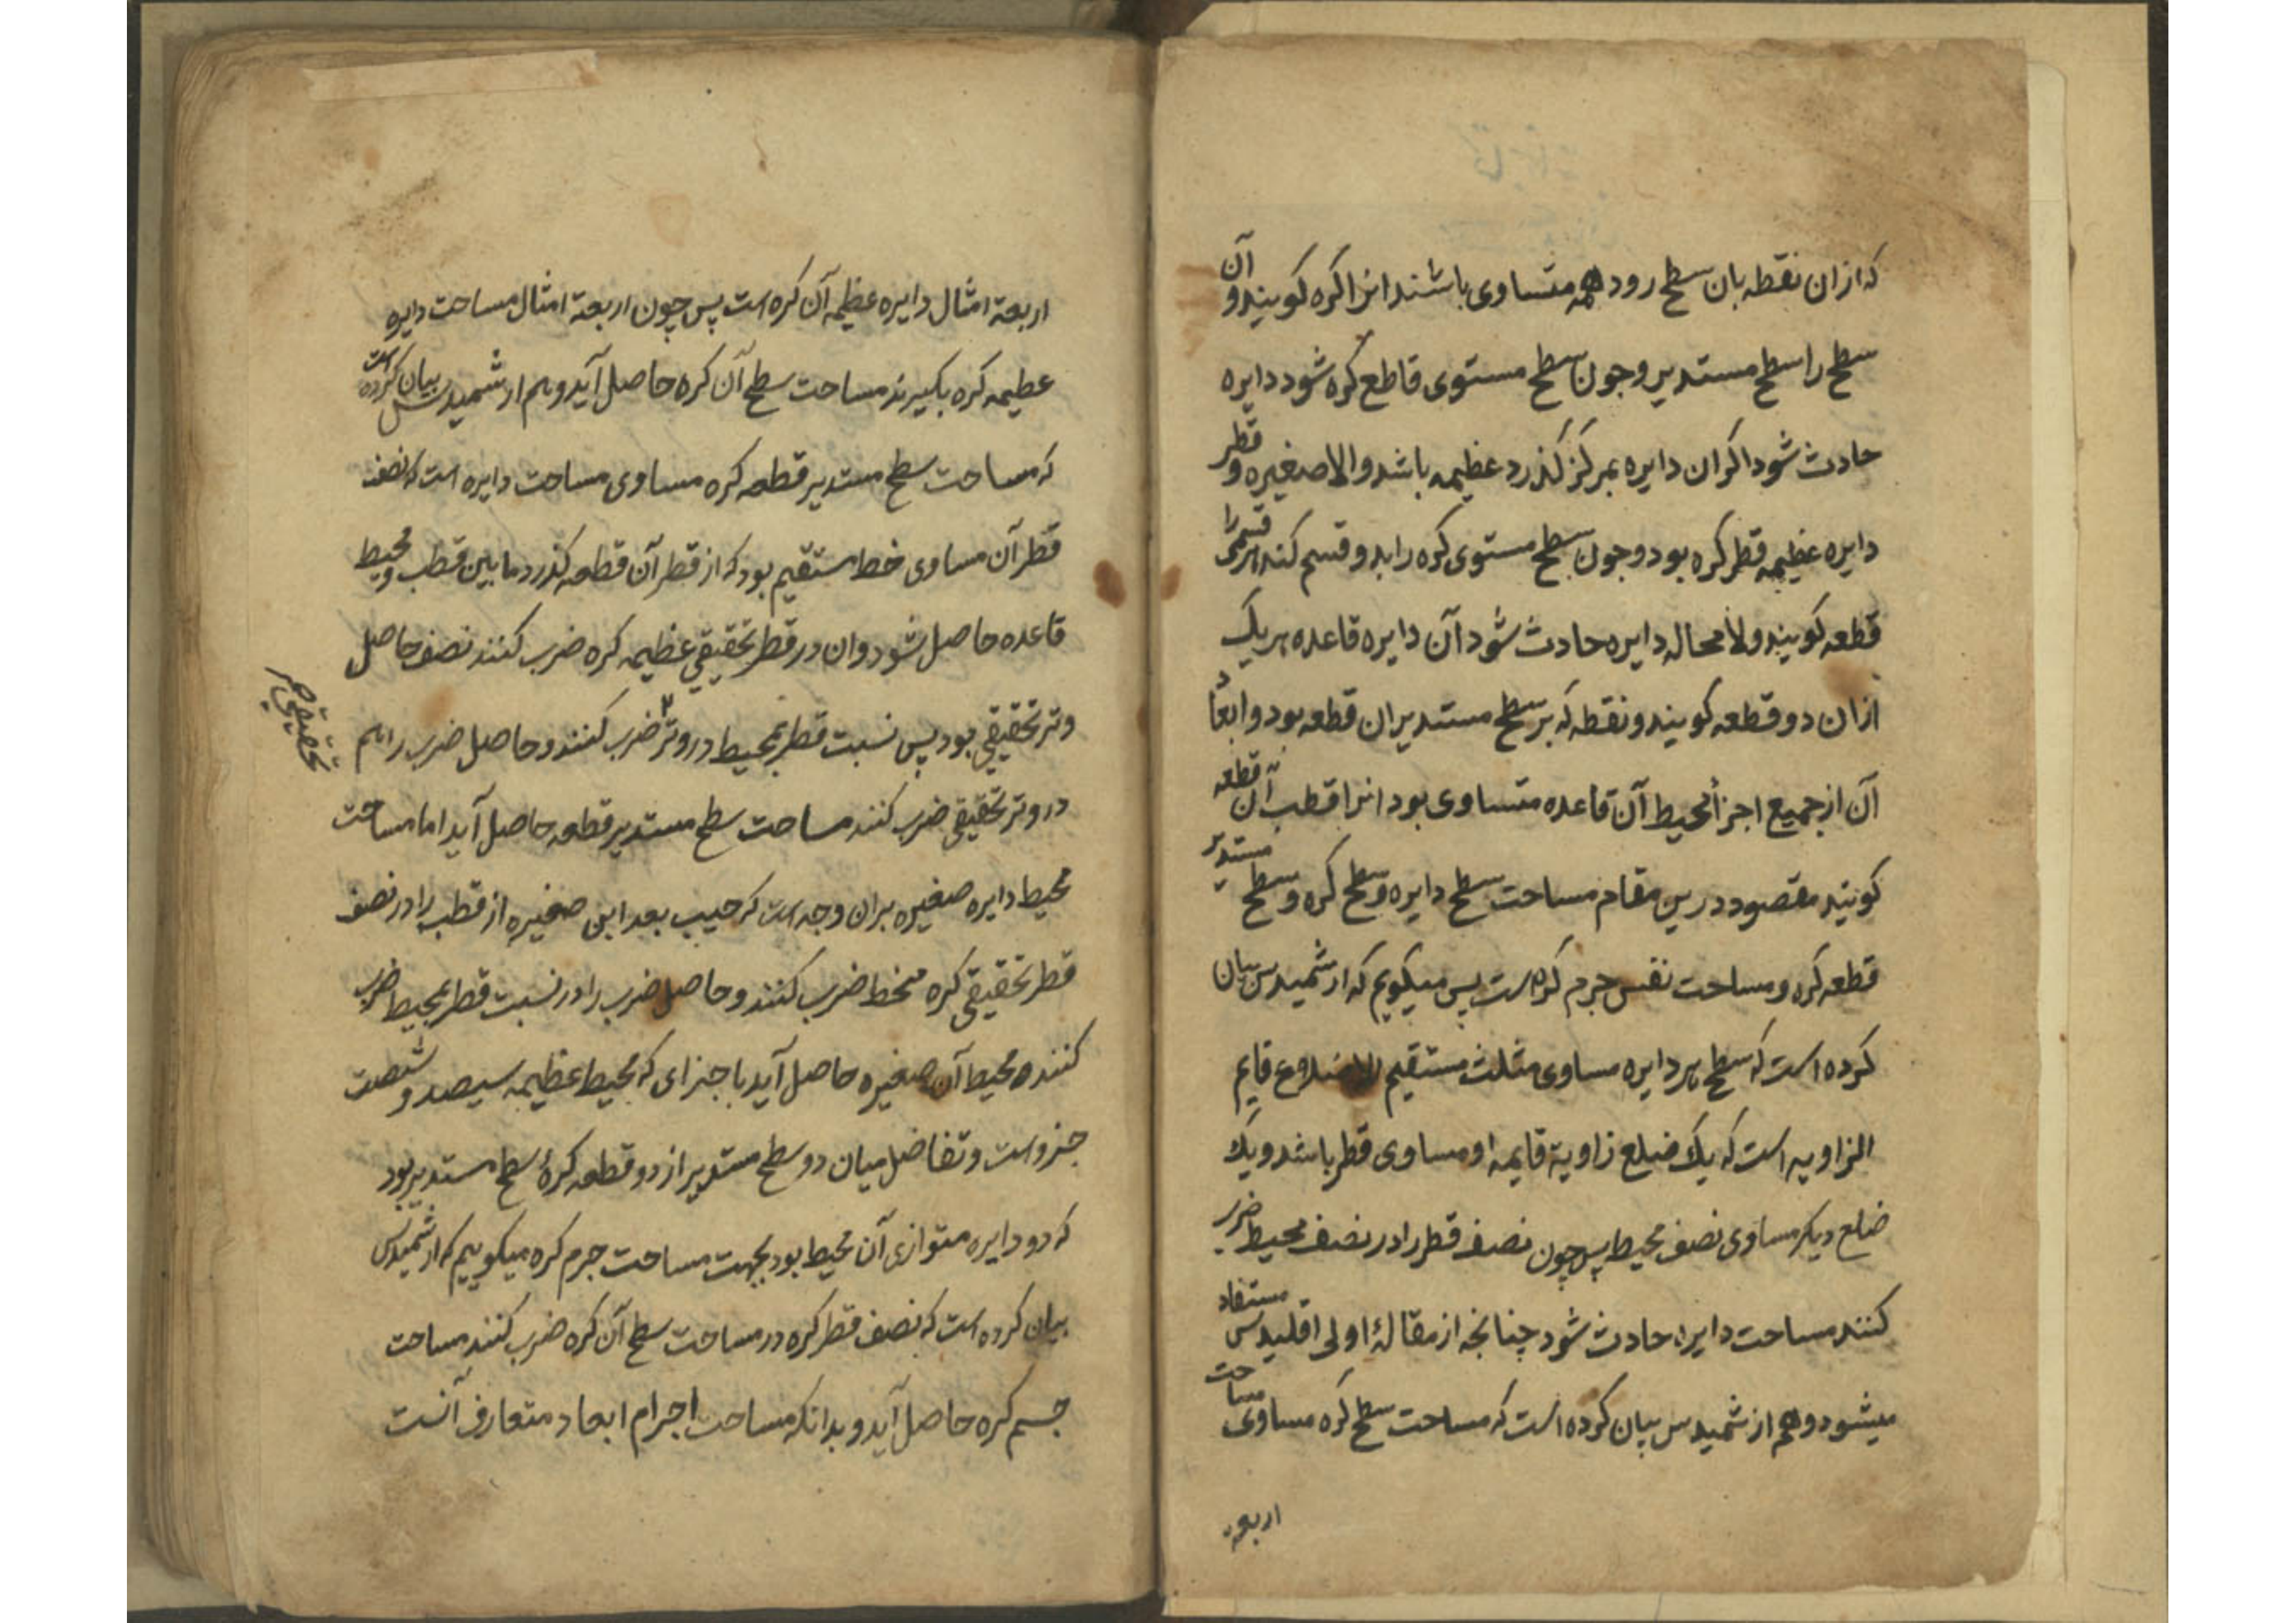 که ازان نقطه بان سطح رود همه متساوی باشند انرا کره کویند و آن
سطح را سطح مستدیر وجون سطح مستوی قاطع کره شود دایره
حادث شود اکر ان دایره بمرکز کذرد عظیمه باشد والا صغیره و قطر
دایره عظیمه قطر کره بود وجون سطح مستوی کره را بدو قسم کند هر قسمی را
قطعه کویند ولا محاله دایره حادث شود آن دایره قاعده هریک
ازان دو قطعه کویند و نقطه که بر سطح مستدیر ان قطعه بود و ابعاد
آن از جمیع اجزأ محیط آن قاعده متساوی بود انرا قطب آن قطعه
کویند مقصود درین مقام مساحت سطح دایره و سطح کره و سطح مستدیر
قطعه کره و مساحت نفس جرم کره است پس میکویم که ارشمیدس بیان
کرده است که سطح هر دایره مساوی مثلث مستقیم الاضلاع قایم
الزاویه است که یک ضلع زاویة قایمه او مساوی قطر باشد و یک
ضلع دیکر مساوی نصف محیط پس چون نصف قطر را در نصف محیط ضرب
کنند مساحت دایره حادث شود چنانجه از مقالهٔ اولی اقلیدس مستفاد
میشود و هم ازشمیدس بیان کرده است که مساحت سطح کره مساوی مساحت
اربعة
اربعة امثال دایره عظیمه آن کره است پس چون اربعة امثال مساحت دایره
عظیمه کره بکیرند مساحت سطح آن کره حاصل آید و هم ارشمیدس بیان کرده است
که مساحت سطح مستدیر قطعه کره مساوی مساحت دایره است که نصف
قطر آن مساوی خط مستقیم بود که از قطر آن قطعه کذرد ما بین قطب و محیط
قاعده حاصل شود وان در قطر تحقیقی عظیمه کره ضرب کنند نصف حاصل
وتر تحقیقی بود پس نسبت قطر بمحیط در وتر ضرب کنند و حاصل ضرب را هم
تحقیقی
در وتر تحقیقی ضرب کنند مساحت سطح مستدیر قطعه حاصل آید اما مساحت
محیط دایره صغیره بران وجه است که جیب بعد این صغیره از قطب را در نصف
قطر تحقیقی کره منحط ضرب کنند و حاصل ضرب را در نسبت قطر بمحیط ضرب
کنند محیط آن صغیره حاصل آید باجزای که محیط عظیمه سیصد و شصت
جزو است و تفاضل میان دو سطح مستدیر از دو قطعه کرهٔ سطح مستدیر بود
که دو دایره متوازی آن محیط بود بجهت مساحت جرم کره میکوییم که ارشمیدس
بیان کرده است که نصف قطر کره در مساحت سطح آن کره ضرب کنند مساحت
جسم کره حاصل آید و بدانکه مساحت اجرام ابعاد متعارف آنست